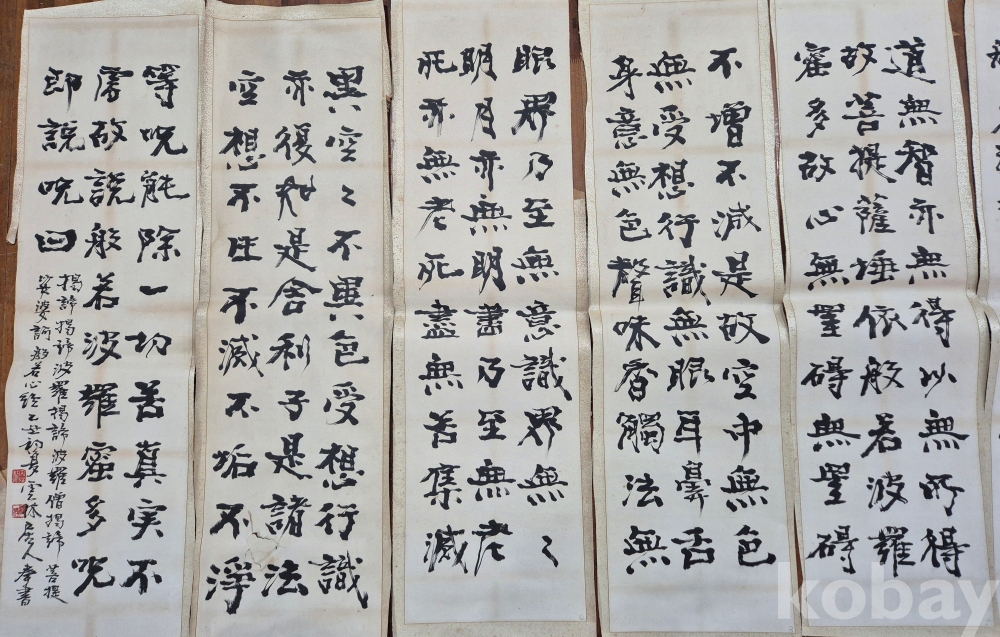 道無智亦無得以無所得
故菩提薩埵依般若波羅
蜜多故心無罣碍無罣碍
不增不減是故空中無色
無受想行識無眼耳鼻舌
身意無色聲味香觸法無
眼界乃至無意識界無〻
明亦無明盡乃至無老
死亦無老死盡無苦集滅
異空〻不異色受想行識
亦復如是舍利子是諸法
空想不生不滅不垢不淨
等呪能除一切苦真実不
虛故說般若波羅蜜多呪
即說呪曰
揭諦揭諦波羅揭諦波羅僧揭諦菩提
娑婆訶般若心經乙丑初夏雲林居人奉書
kobay